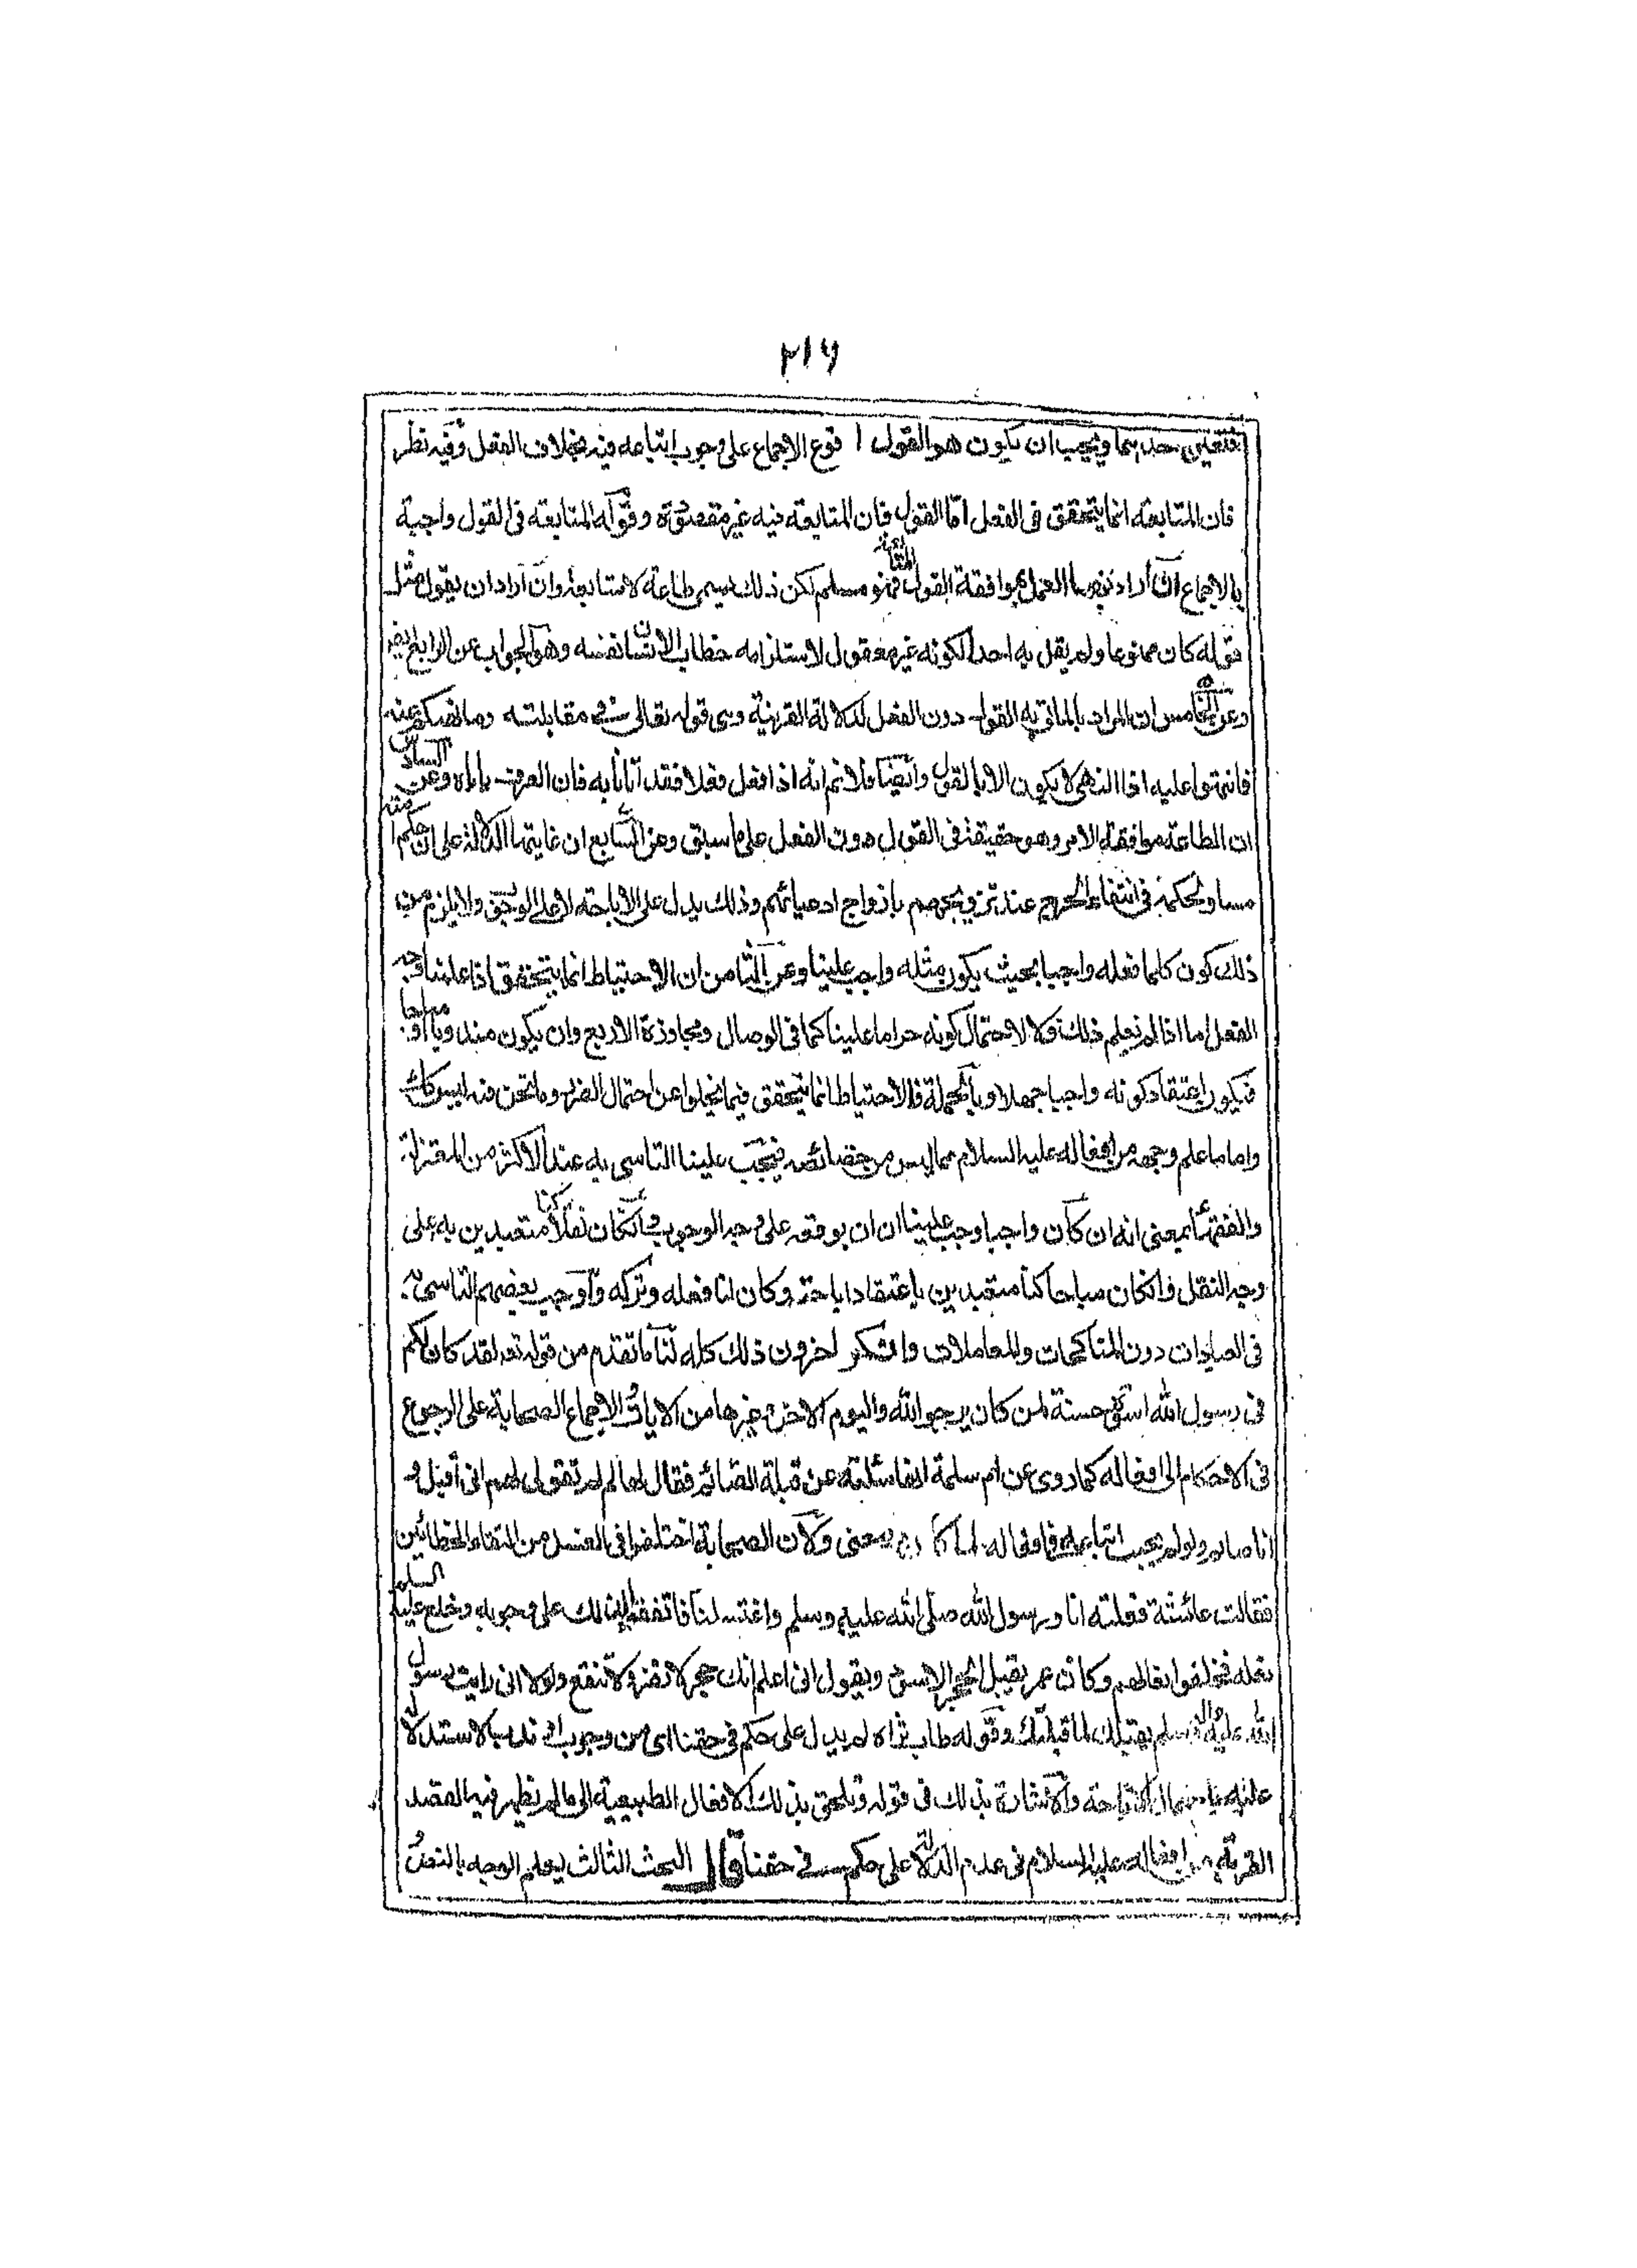 ٢١٦
فتعين احدهما ويجب ان يكون هو القول لوقوع الاجماع على وجوب اتباعه فيه بخلاف الفعل وفيه نظر
فان المتابعة انما يتحقق فى الفعل امّا القول فان المتابعة فيه غير مقصودة وقوله المتابعة فى القول واجبة
بالاجماع ان اراد بها العمل بموافقة القول فهو مسلم لكن ذلك يسمى طاعة لا متابعة وان اراد ان يقول مثل
قوله كان ممنوعا ولم يقل به احد لكونه غير معقول لاستلزامه خطاب الانسان نفسه وهو الجواب عن الرابع
وعن الخامس ان المراد بالماتى به القول دون الفعل لدلالة القرينة وهى قوله تعالى فى مقابلته وما نهيكم عنه
فانتهوا عليه اذا النهى لا يكون الا بالقول وايضا فلا نم انه اذا فعل فعلا فقد آتانا به وعن السادس
ان الطاعة موافقة الامر وهو حقيقة فى القول دون الفعل على ما سبق وعن السابع ان غايتها الدلالة على ان حكم امته
مساو لحكمه فى انتفاء الحرج عند تزويجهم بازواج ادعيائهم وذلك يدل على الاباحة لا على الوجوب ولا يلزم من
ذلك كون كلما فعله واجبا بحيث يكون مثله واجب علينا وعن الثامن ان الاحتياط انما يتحقق اذا علمنا وجه
الفعل اما اذا لم نعلم ذلك فلا لاحتمال كونه حراما علينا كما فى الوصال ومجاوزة الاربع وان يكون مندوبا او مباحا
فيكون اعتقاد كونه واجبا جهلا وبالجملة فالاحتياط انما يتحقق فيما يخلوا عن احتمال الضرر وما نحن فيه ليس كذلك
واما ما علم وجهه من افعاله عليه السلام مما ليس من خصائصه فيجب علينا التاسى به عند الاكثر من المعتزلة
والفقهاء بمعنى انه ان كان واجبا وجب علينا ان نوقعه على وجه الوجوب وانكان نفلا كنا متعبدين به على
وجه النفل وانكان مباحا كنا متعبدين باعتقاد اباحته وكان لنا فعله وتركه وأوجب بعضهم التاسى به
فى العبادات دون المناكحات والمعاملات وانكر اخرون ذلك كله لنا ما تقدم من قوله تعه لقد كان لكم
فى رسول الله اسوة حسنة لمن كان يرجو الله واليوم الاخر وغيرها من الايات والاجماع الصحابة على الرجوع
فى الاحكام الى افعاله كما روى عن ام سلمة انها سئلته عن قبلة الصائم فقال لها لم لم تقولى لهم انى أقبل و
انا صائم ولو لم يجب اتباعه فى افعاله لما كان معنى ولان الصحابة اختلفوا فى الغسل من التقاء الختانين
فقالت عائشة فعلته انا ورسول الله صلى الله عليه وسلم واغتسلنا فاتفقوا لذلك على وجوبه وخلع عليه السلم
نعله فخلعوا نعالهم وكان عمر يقبل الحجر الاسود ويقول انى اعلم انك حجر لا تضر ولا تنفع ولولا انى رايت رسول
الله عليه السلم يقبلك لما قبلتك وقوله طاب ثراه لم يدل على حكم فى حقنا اى من وجوب او ندب بالاستدلال
عليه الاباحة والاشارة بذلك فى قوله ويلحق بذلك الافعال الطبيعية الى ما لم يظهر فيه القصد
القربة من افعاله عليه السلام فى عدم الدلالة على حكم فى حقنا قال البحث الثالث يعلم الوجه بالنص